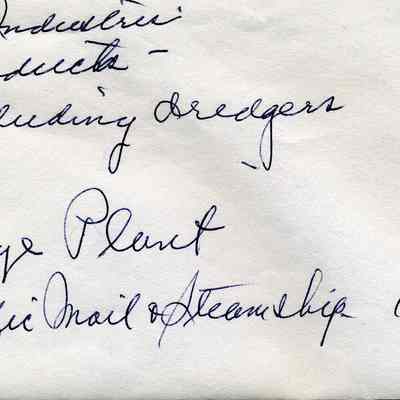 Industri
ducts -
luding dredgers
ge Plant
fic Mail & Steamship